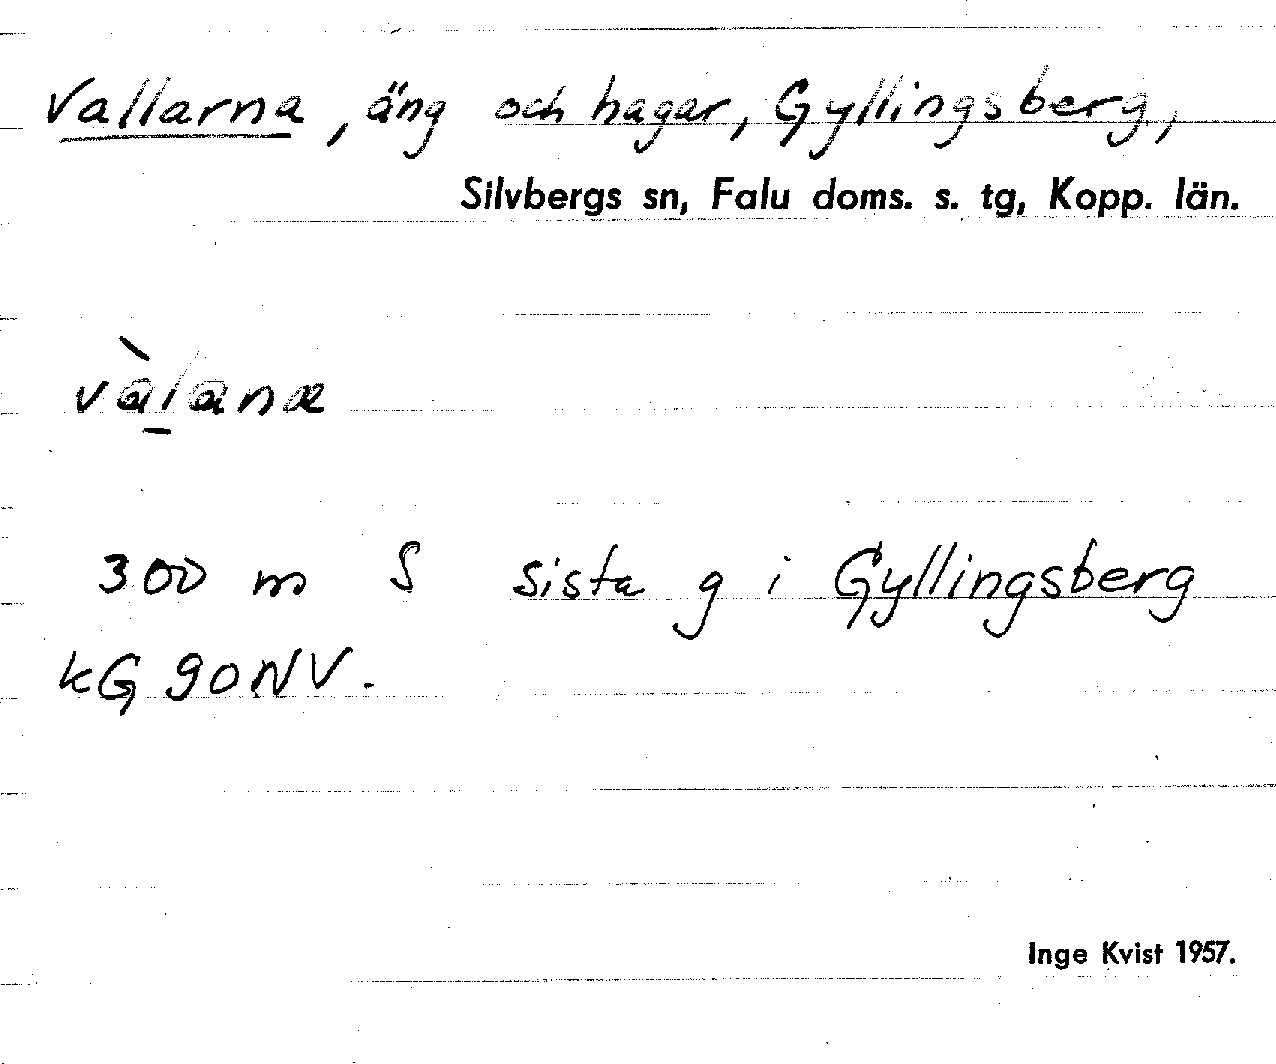 Vallarna, äng och hagar, Gyllingsberg,
Silvbergs sn, Falu doms. s. tg, Kopp. län.
vàlanæ
300 m S sista g i Gyllingsberg
kG 90NV.
Inge Kvist 1957.